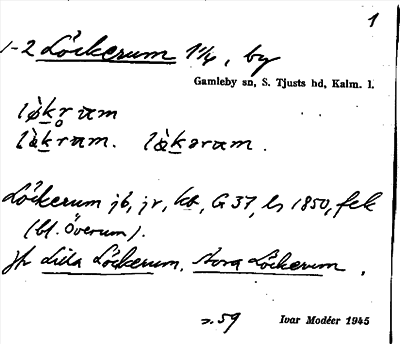 1
1-2 Löckerum 1 1/4, by
Gamleby sn, S. Tjusts hd, Kalm. l.
lø̀kr̥am
lǜkram. lǜkəram.
Löckerum jb, jr, kb, G 37, ls 1850, fek
(bl. Överum).
jfr Lilla Löckerum, Stora Löckerum,
s. 59
Ivar Modéer 1945